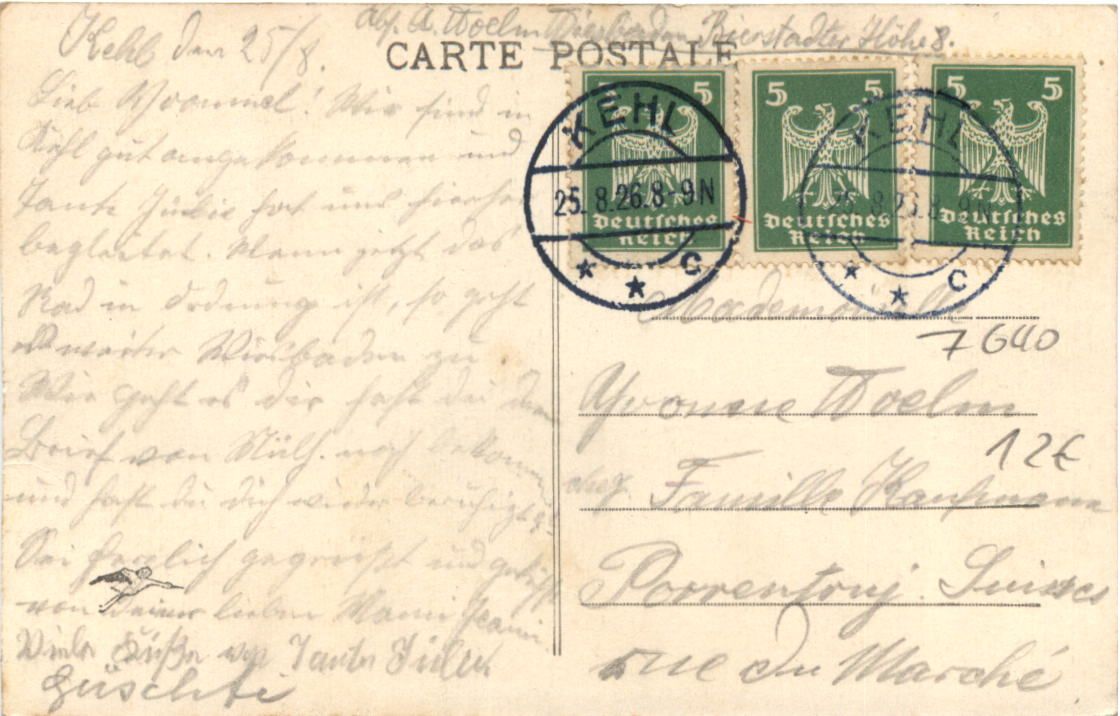 Abs. A. Doelm Wiesbaden Bierstadter Höhe 8.
CARTE POSTALE
Kehl den 25/8.
Wir sind in
Kehl gut angekommen und
Tante Julie hat uns hierher
begleitet. Wenn jetzt das
Rad in Ordnung ist, so geht
es weiter Wiesbaden zu
Wie geht es dir hast du den
Brief von Mülh. noch bekommen
und hast du dich wieder beruhigt?
Sei herzlich gegrüßt und geküßt
von deiner lieben Mami
Viele Küße von Tante Julie
5
5 5
5 5
Deutsches
Reich
Deutsches
Reich
Deutsches
Reich
KEHL
25. 8.26.8-9N
* * C
KEHL
25. 8.26.8-9N
* * C
Mademoiselle
7640
Yvonne Doelm
12€
chez Famille Kaufmann
Porrentruj. Suisse
rue du Marché